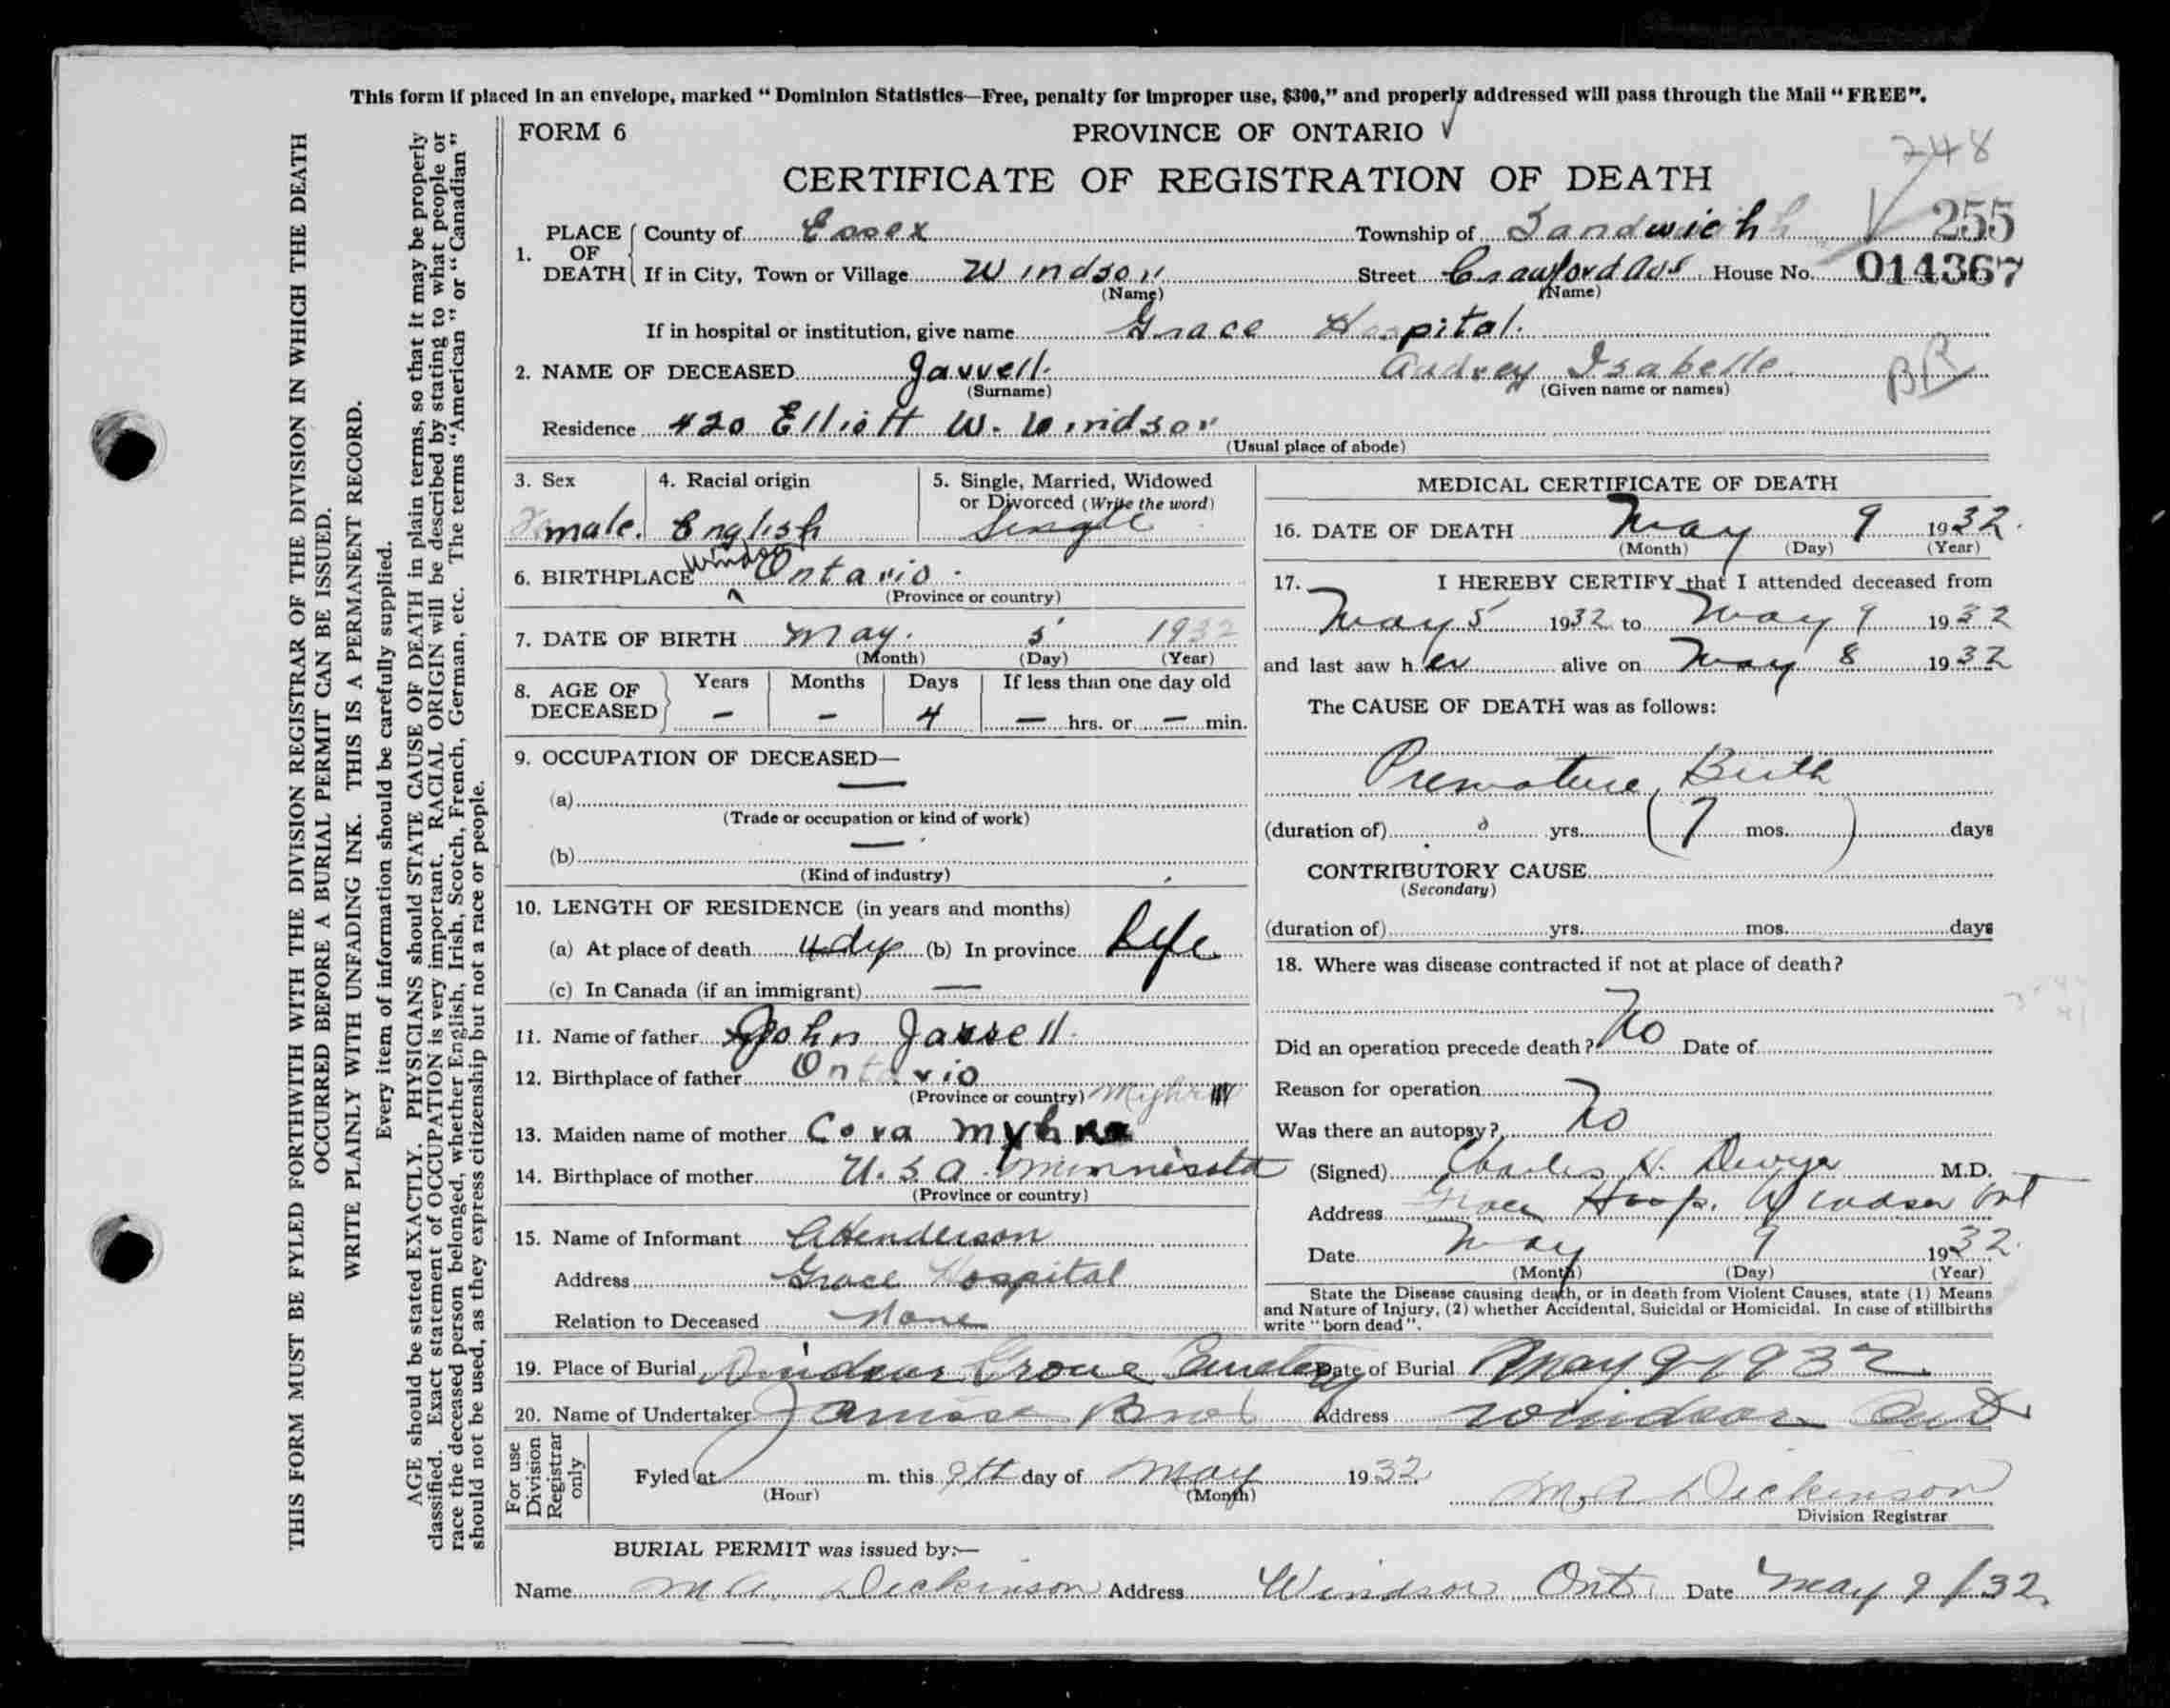 This form if placed in an envelope, marked “Dominion Statistics—Free, penalty for improper use, $300,” and properly addressed will pass through the Mail “FREE”.
THIS FORM MUST BE FYLED FORTHWITH WITH THE DIVISION REGISTRAR OF THE DIVISION IN WHICH THE DEATH
OCCURRED BEFORE A BURIAL PERMIT CAN BE ISSUED.
WRITE PLAINLY WITH UNFADING INK. THIS IS A PERMANENT RECORD.
Every item of information should be carefully supplied.
AGE should be stated EXACTLY. PHYSICIANS should STATE CAUSE OF DEATH in plain terms, so that it may be properly
classified. Exact statement of OCCUPATION is very important. RACIAL ORIGIN will be described by stating to what people or
race the deceased person belonged, whether English, Irish, Scotch, French, German, etc. The terms “American” or “Canadian”
should not be used, as they express citizenship but not a race or people.
FORM 6 PROVINCE OF ONTARIO
748
CERTIFICATE OF REGISTRATION OF DEATH
255
1. PLACE OF DEATH County of Essex Township of Sandwich
If in City, Town or Village Windsor Street Crawford Ave House No. 014367
(Name) (Name)
If in hospital or institution, give name Grace Hospital.
2. NAME OF DECEASED Jarrell. Audrey Isabelle BR
(Surname) (Given name or names)
Residence 420 Elliott W. Windsor
(Usual place of abode)
3. Sex 4. Racial origin 5. Single, Married, Widowed
or Divorced (Write the word)
Female. English Single
6. BIRTHPLACE Windsor Ontario.
(Province or country)
7. DATE OF BIRTH May. 5 1932
(Month) (Day) (Year)
8. AGE OF DECEASED Years Months Days If less than one day old
— — 4 — hrs. or — min.
9. OCCUPATION OF DECEASED—
(a) —
(Trade or occupation or kind of work)
(b) —
(Kind of industry)
10. LENGTH OF RESIDENCE (in years and months)
(a) At place of death 4 dys (b) In province Life
(c) In Canada (if an immigrant) —
11. Name of father John Jarrell.
12. Birthplace of father Ontario
(Province or country)
13. Maiden name of mother Cora
14. Birthplace of mother U.S.A. Minnesota
(Province or country)
15. Name of Informant Henderson
Address Grace Hospital
Relation to Deceased None
MEDICAL CERTIFICATE OF DEATH
16. DATE OF DEATH May 9 1932.
(Month) (Day) (Year)
17. I HEREBY CERTIFY that I attended deceased from
May 5 1932 to May 9 1932
and last saw her alive on May 8 1932
The CAUSE OF DEATH was as follows:
Premature Birth
(duration of) yrs. (7 mos.) days
CONTRIBUTORY CAUSE
(Secondary)
(duration of) yrs. mos. days
18. Where was disease contracted if not at place of death?
Did an operation precede death? No Date of
Reason for operation
Was there an autopsy? No
(Signed) Charles H. M.D.
Address Grace Hosp. Windsor Ont
Date May 9 1932.
(Month) (Day) (Year)
State the Disease causing death, or in death from Violent Causes, state (1) Means
and Nature of Injury, (2) whether Accidental, Suicidal or Homicidal. In case of stillbirths
write “born dead”.
19. Place of Burial Windsor Grove Cemetery Date of Burial May 9 1932
20. Name of Undertaker Janisse Bros Address Windsor Ont
For use
Division
Registrar
only
Fyled at m. this 9th day of May 1932
(Hour) (Month)
M. A. Dickinson
Division Registrar
BURIAL PERMIT was issued by:—
Name M. A. Dickinson Address Windsor Ont. Date May 9/32